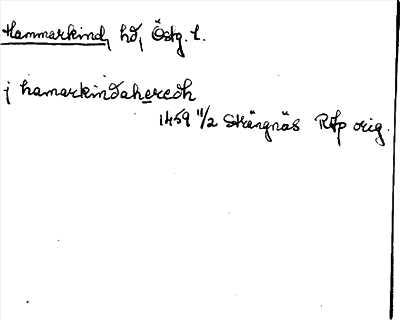 Hammarkind, hd, Östg. l.
j hamarkindaheredh
1459 11/2 Strängnäs RAp orig.